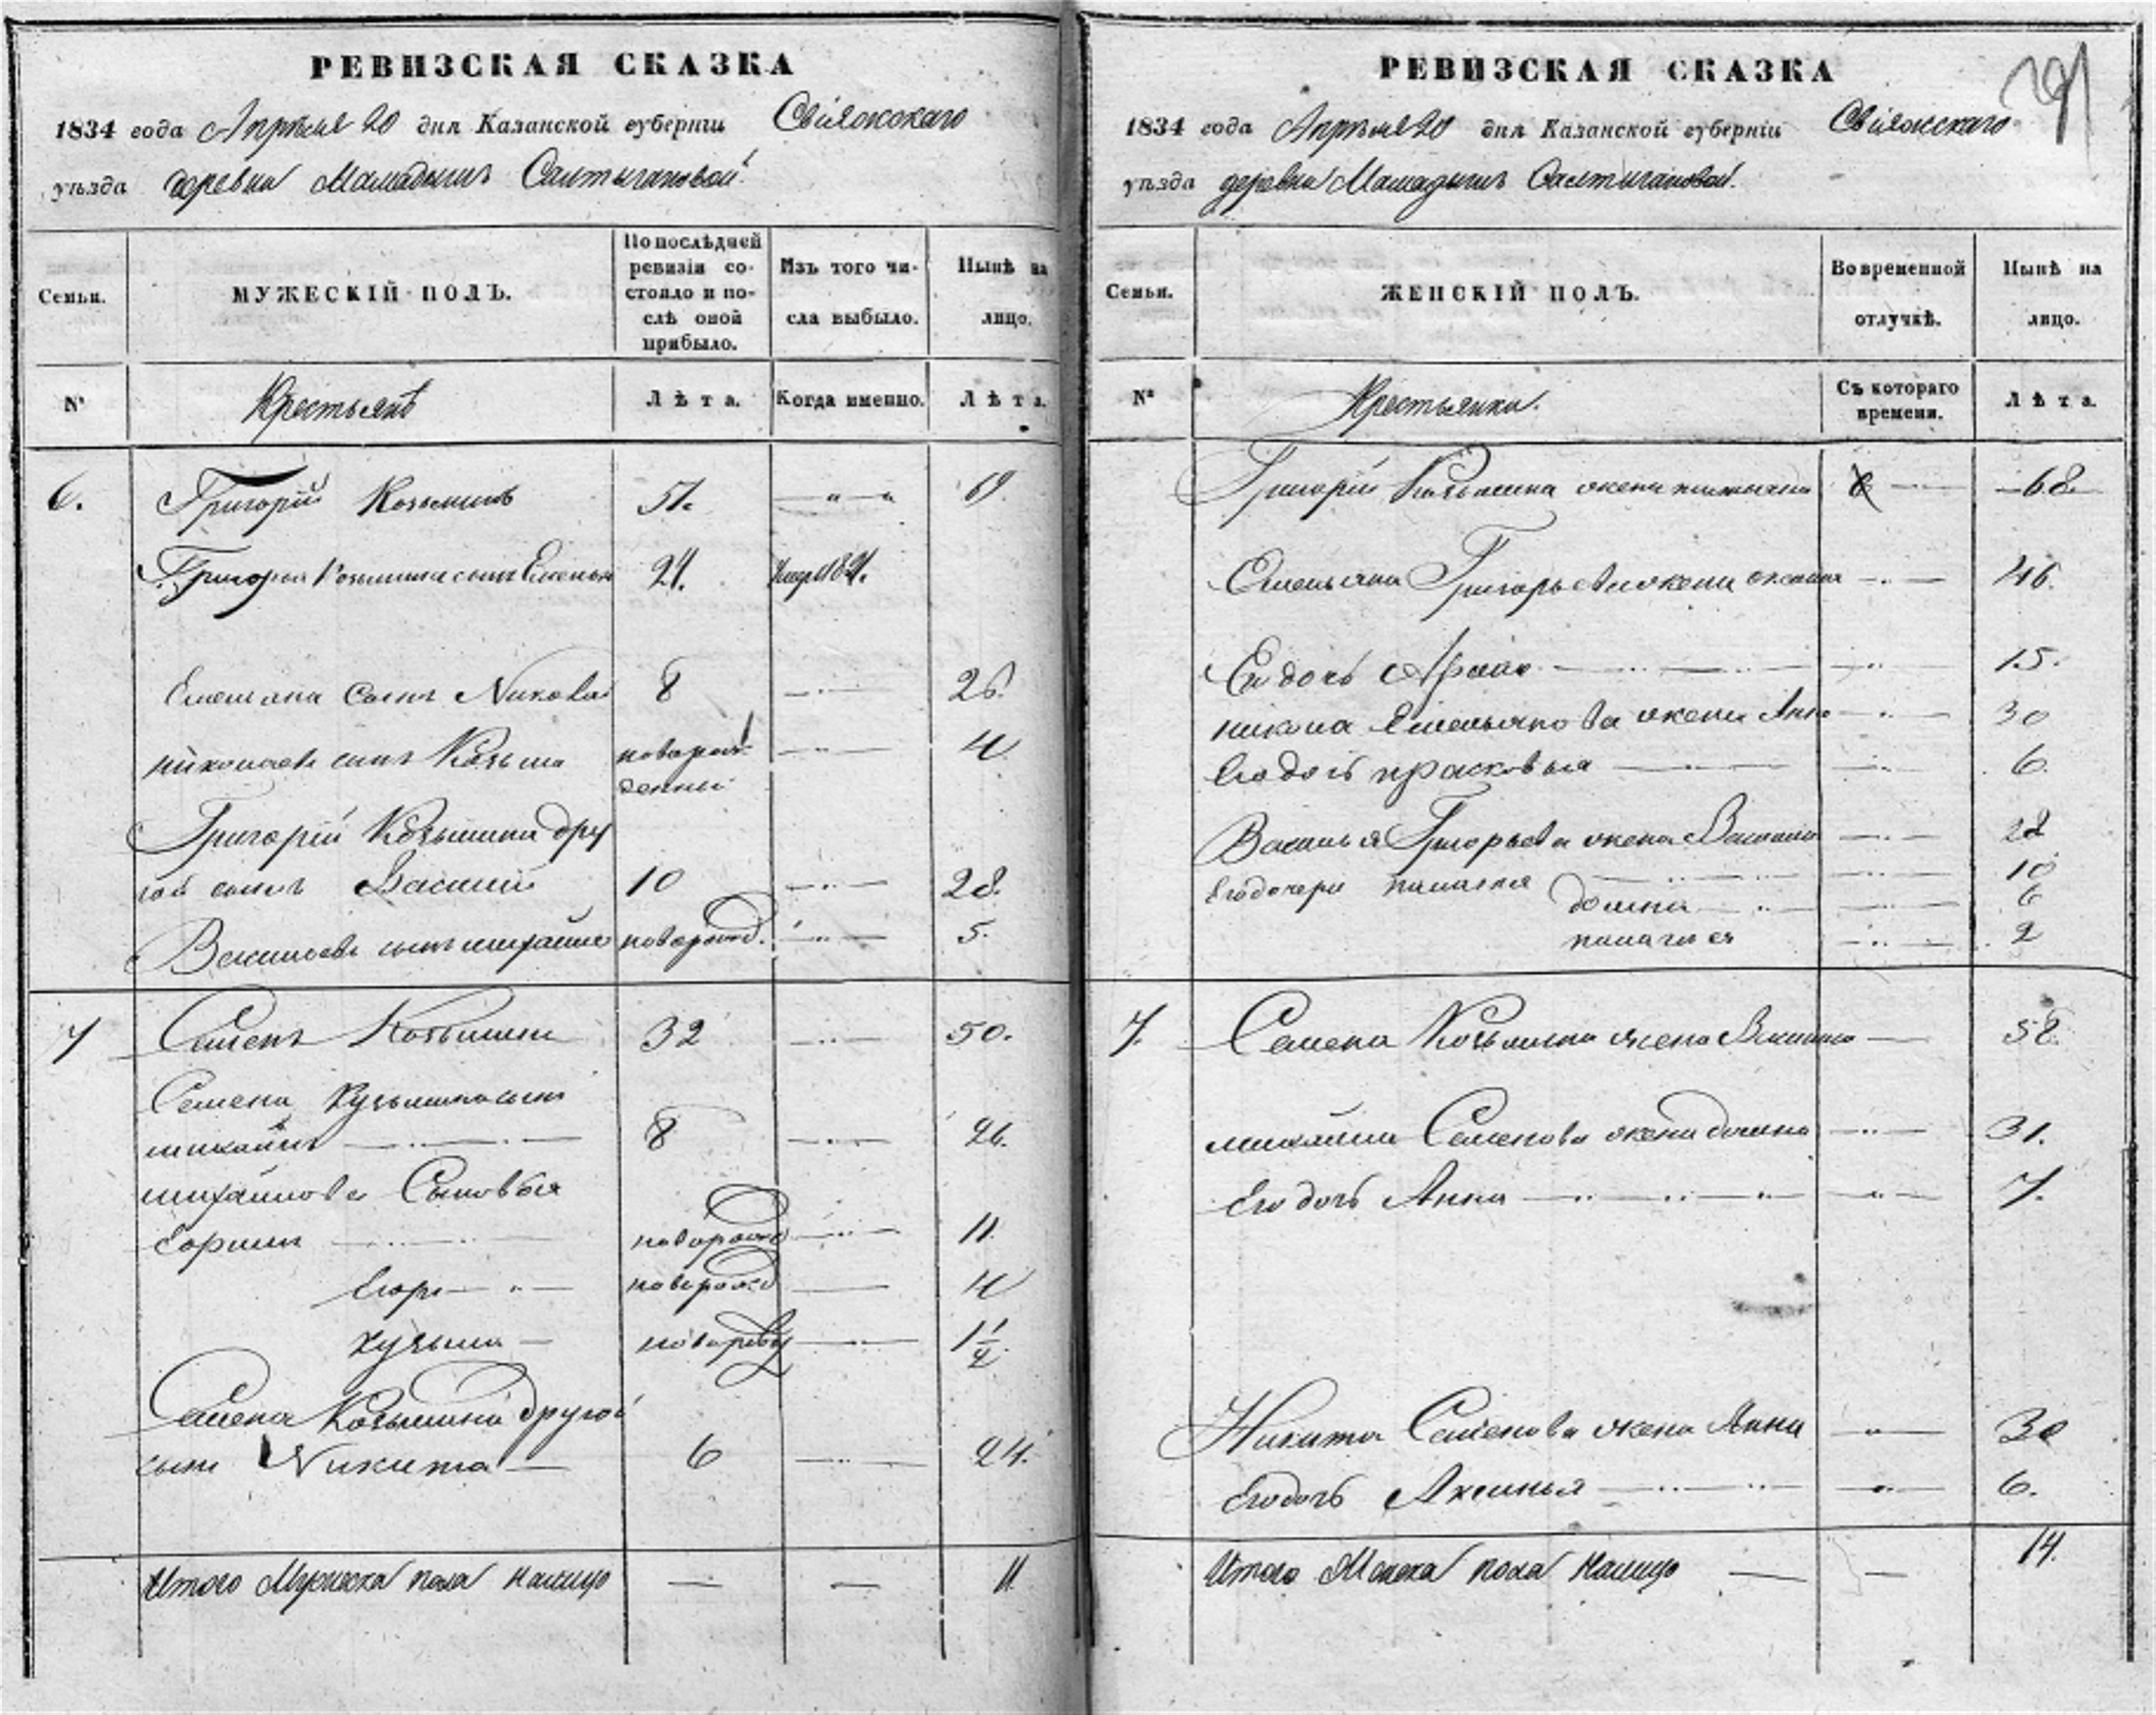 РЕВИЗСКАЯ СКАЗКА
1834 года Апреля 20 дня Казанской губерніи Свіяжскаго
уѣзда деревни Мамадышъ Салтыгановой.
Семьи.
МУЖЕСКІЙ ПОЛЪ.
По послѣдней ревизіи со-
стояло и по-
слѣ оной
прибыло.
Изъ того чи-
сла выбыло.
Нынѣ на
лицо.
№
Крестьянъ
Лѣта.
Когда именно.
Лѣта.
6. Григорій Козьминъ 51. 69.
Григорья Козьмина сынъ Емельян 24.
Емельяна сынъ Николай 8 26.
Николаевъ сынъ Козьма новорож- 4
денный
Григорій Козьмина дру
гой сынъ Василій 10 28.
Васильевъ сынъ новорожд. 5.
7 Семенъ Козьмин 32 50.
Семена Кузьмина сынъ
Михайлъ 8 26.
Михайлова Сыновья
новорожд 11.
Егоръ новорожд 4
Кузьма новорож 1 1/2
Семена Козьмина другой
сынъ Никита 6 24.
Итого Мужеска пола налицо — — 11
РЕВИЗСКАЯ СКАЗКА
1834 года Апреля 20 дня Казанской губерніи Свіяжскаго
уѣзда деревни Мамадышъ Салтыгановой.
Семьи.
ЖЕНСКІЙ ПОЛЪ.
Во временной
отлучкѣ.
Нынѣ на
лицо.
№
Крестьянки.
Съ котораго
времени.
Лѣта.
Григорій Козьмина жена 68.
Емельяна Григорьева жена 46.
Ею дочь 15.
Никола Емельянова жена Анна 30
Его дочь Прасковья 6.
Василья Григорьева жена Василиса 28
Его дочери Палагея 10
Домна 6
Палагея 2
7. Семена Козьмина жена Василиса 58.
Михайла Семенова жена Домна 31.
Его дочь Анна 7.
Никита Семенова жена Анна 30
Его дочь Аксинья 6.
Итого Женска пола налицо — — 14.